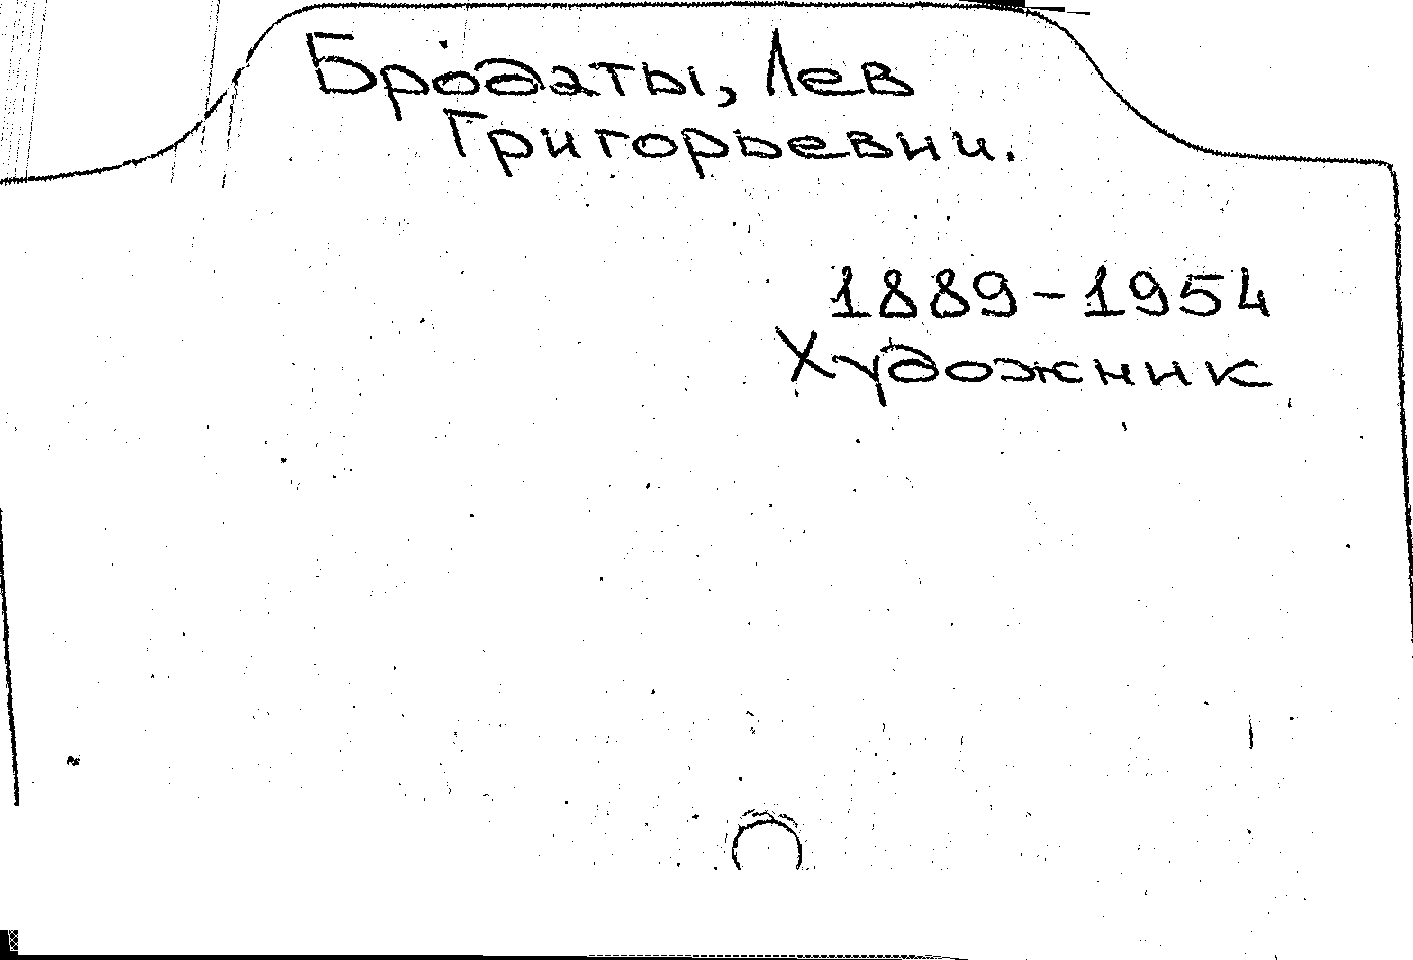 Бродаты, Лев
Григорьевич.
1889-1954
Художник